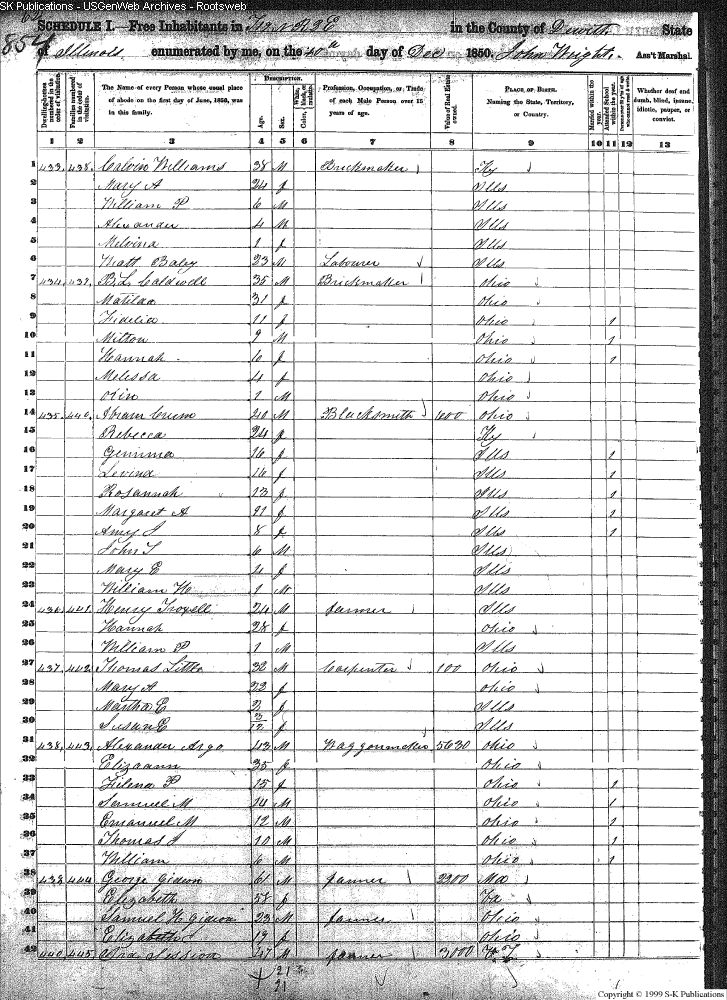 SK Publications - USGenWeb Archives - Rootsweb
854
SCHEDULE I.—Free Inhabitants in in the County of Dewitt State
of Illinois enumerated by me, on the day of Dec 1850. John Wright. Ass't Marshal.
Dwelling-houses numbered in the order of visitation.
Families numbered in the order of visitation.
The Name of every Person whose usual place of abode on the first day of June, 1850, was in this family.
Description.
Age.
Sex.
Color, White, black, or mulatto.
Profession, Occupation, or Trade of each Male Person over 15 years of age.
Value of Real Estate owned.
Place of Birth. Naming the State, Territory, or Country.
Married within the year.
Attended School within the year.
Whether deaf and dumb, blind, insane, idiotic, pauper, or convict.
1 2 3 4 5 6 7 8 9 10 11 12 13
1 433. 438. Calvin Williams 38 M Brickmaker Ky
2 Mary A 24 f Ills
3 William P 6 M Ills
4 Alexander 4 M Ills
5 Melvina 1 f Ills
6 Matt Baley 23 M Labourer Ills
7 434. 439. B.L. Caldwell 35 M Brickmaker Ohio
8 Matilda 31 f Ohio
9 Fidelia 11 f Ohio 1
10 Milton 9 M Ohio 1
11 Hannah 6 f Ohio 1
12 Melissa 4 f Ohio
13 Orin 1 M Ohio
14 435. 440. Abram Crum 40 M Blacksmith 400 Ohio
15 Rebecca 24 f Ky
16 Gemima 16 f Ills 1
17 Levina 16 f Ills 1
18 Rosannah 13 f Ills 1
19 Margaret A f Ills 1
20 Amy J 8 f Ills 1
21 John T 6 M Ills
22 Mary E 4 f Ills
23 William H 1 M Ills
24 436. 441. Henry Troxell 24 M farmer Ills
25 Hannah 28 f Ohio
26 William P 1 M Ills
27 437. 442. Thomas Little 32 M Carpenter 100 Ohio
28 Mary A 22 f Ohio
29 Martha E 2 f Ills
30 Susan E 3/12 f Ills
31 438. 443. Alexander Argo 42 M Waggonmaker 5630 Ohio
32 Elizaann 35 f Ohio
33 Filena P 15 f Ohio 1
34 Samuel M 14 M Ohio 1
35 Emanuel M 12 M Ohio 1
36 Thomas J 10 M Ohio 1
37 William 6 M Ohio 1
38 439. 444. George Gideon 61 M farmer 2200 Md
39 Elizabeth f Va
40 Samuel H. Gideon 23 M farmer Ohio
41 Elizabeth 19 f Ohio
42 440. 445. 47 M farmer 3000
21
21
Copyright © 1999 S-K Publications